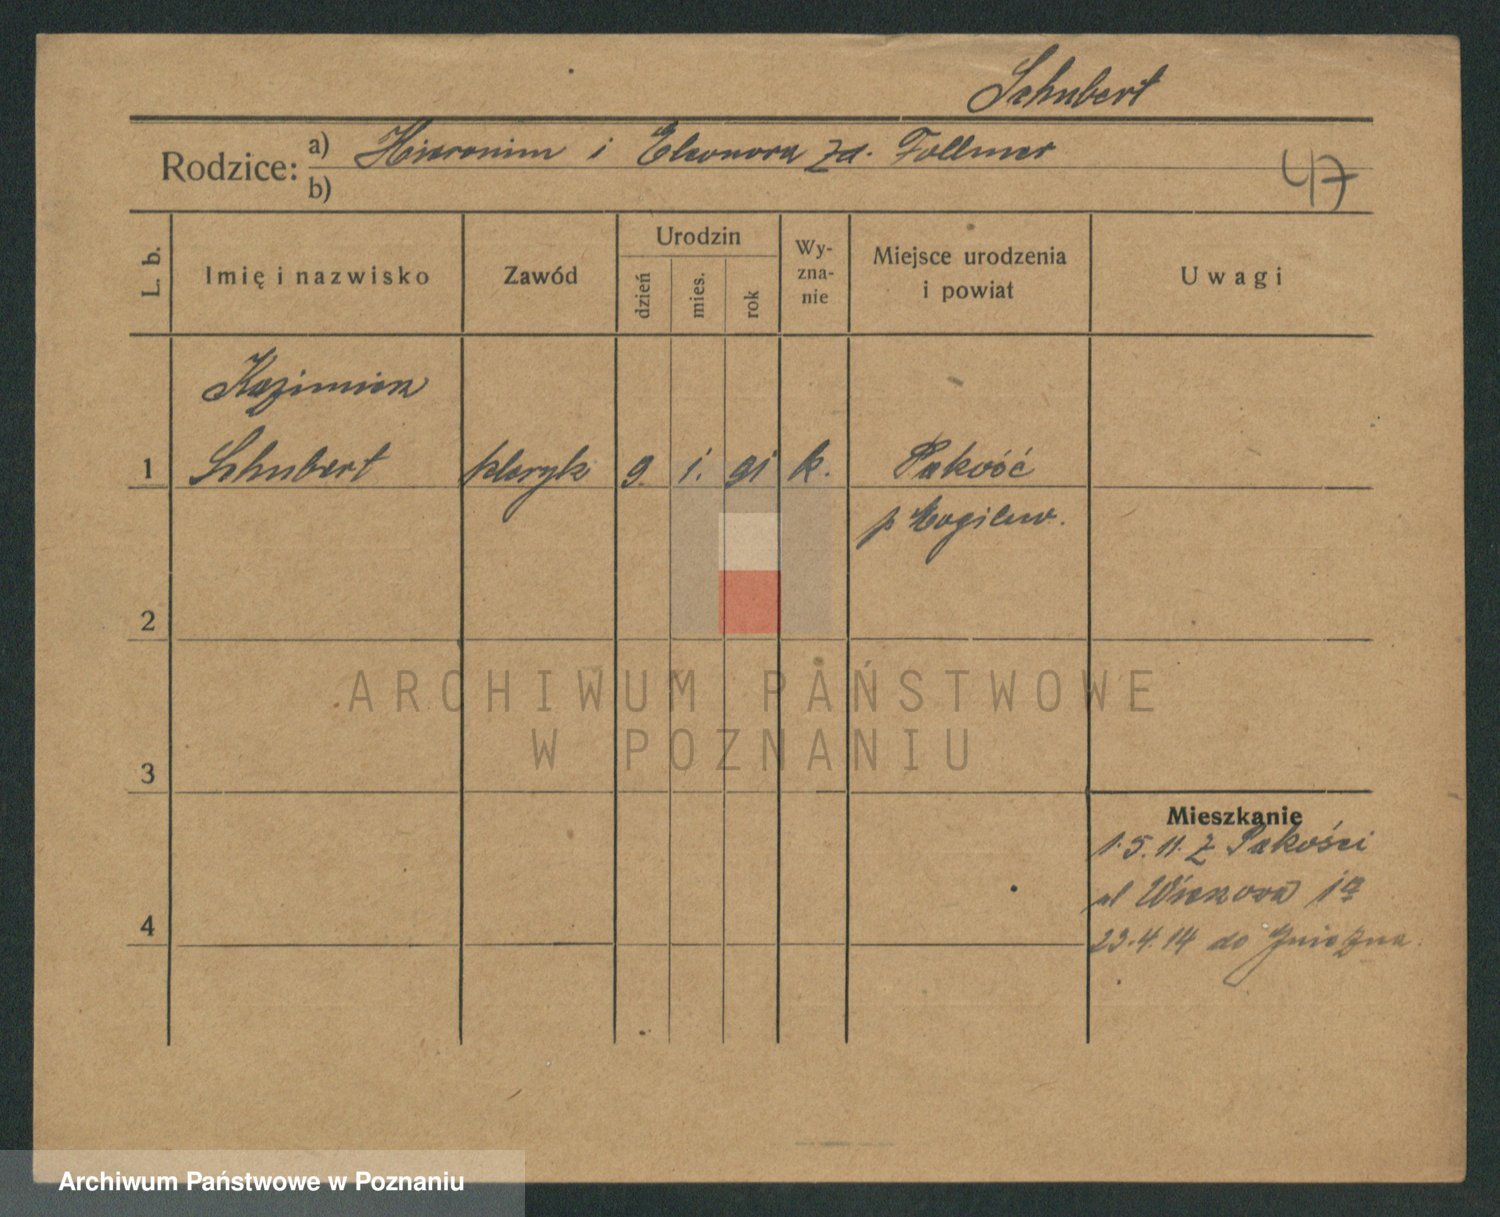 Schubert
Rodzice: a) Hieronim i Eleonora zd. Follmer
b)
47
L. b.
Imię i nazwisko
Zawód
Urodzin
dzień
mies.
rok
Wy-
zna-
nie
Miejsce urodzenia
i powiat
Uwagi
Kazimierz
1 Schubert kleryk 9. 1. 91 k. Pakość
p Mogilno.
2
3
4
Mieszkanie
1.5.11. z Pakości
ul 1a
23.4.14 do Gniezna.
ARCHIWUM PAŃSTWOWE
W POZNANIU
Archiwum Państwowe w Poznaniu